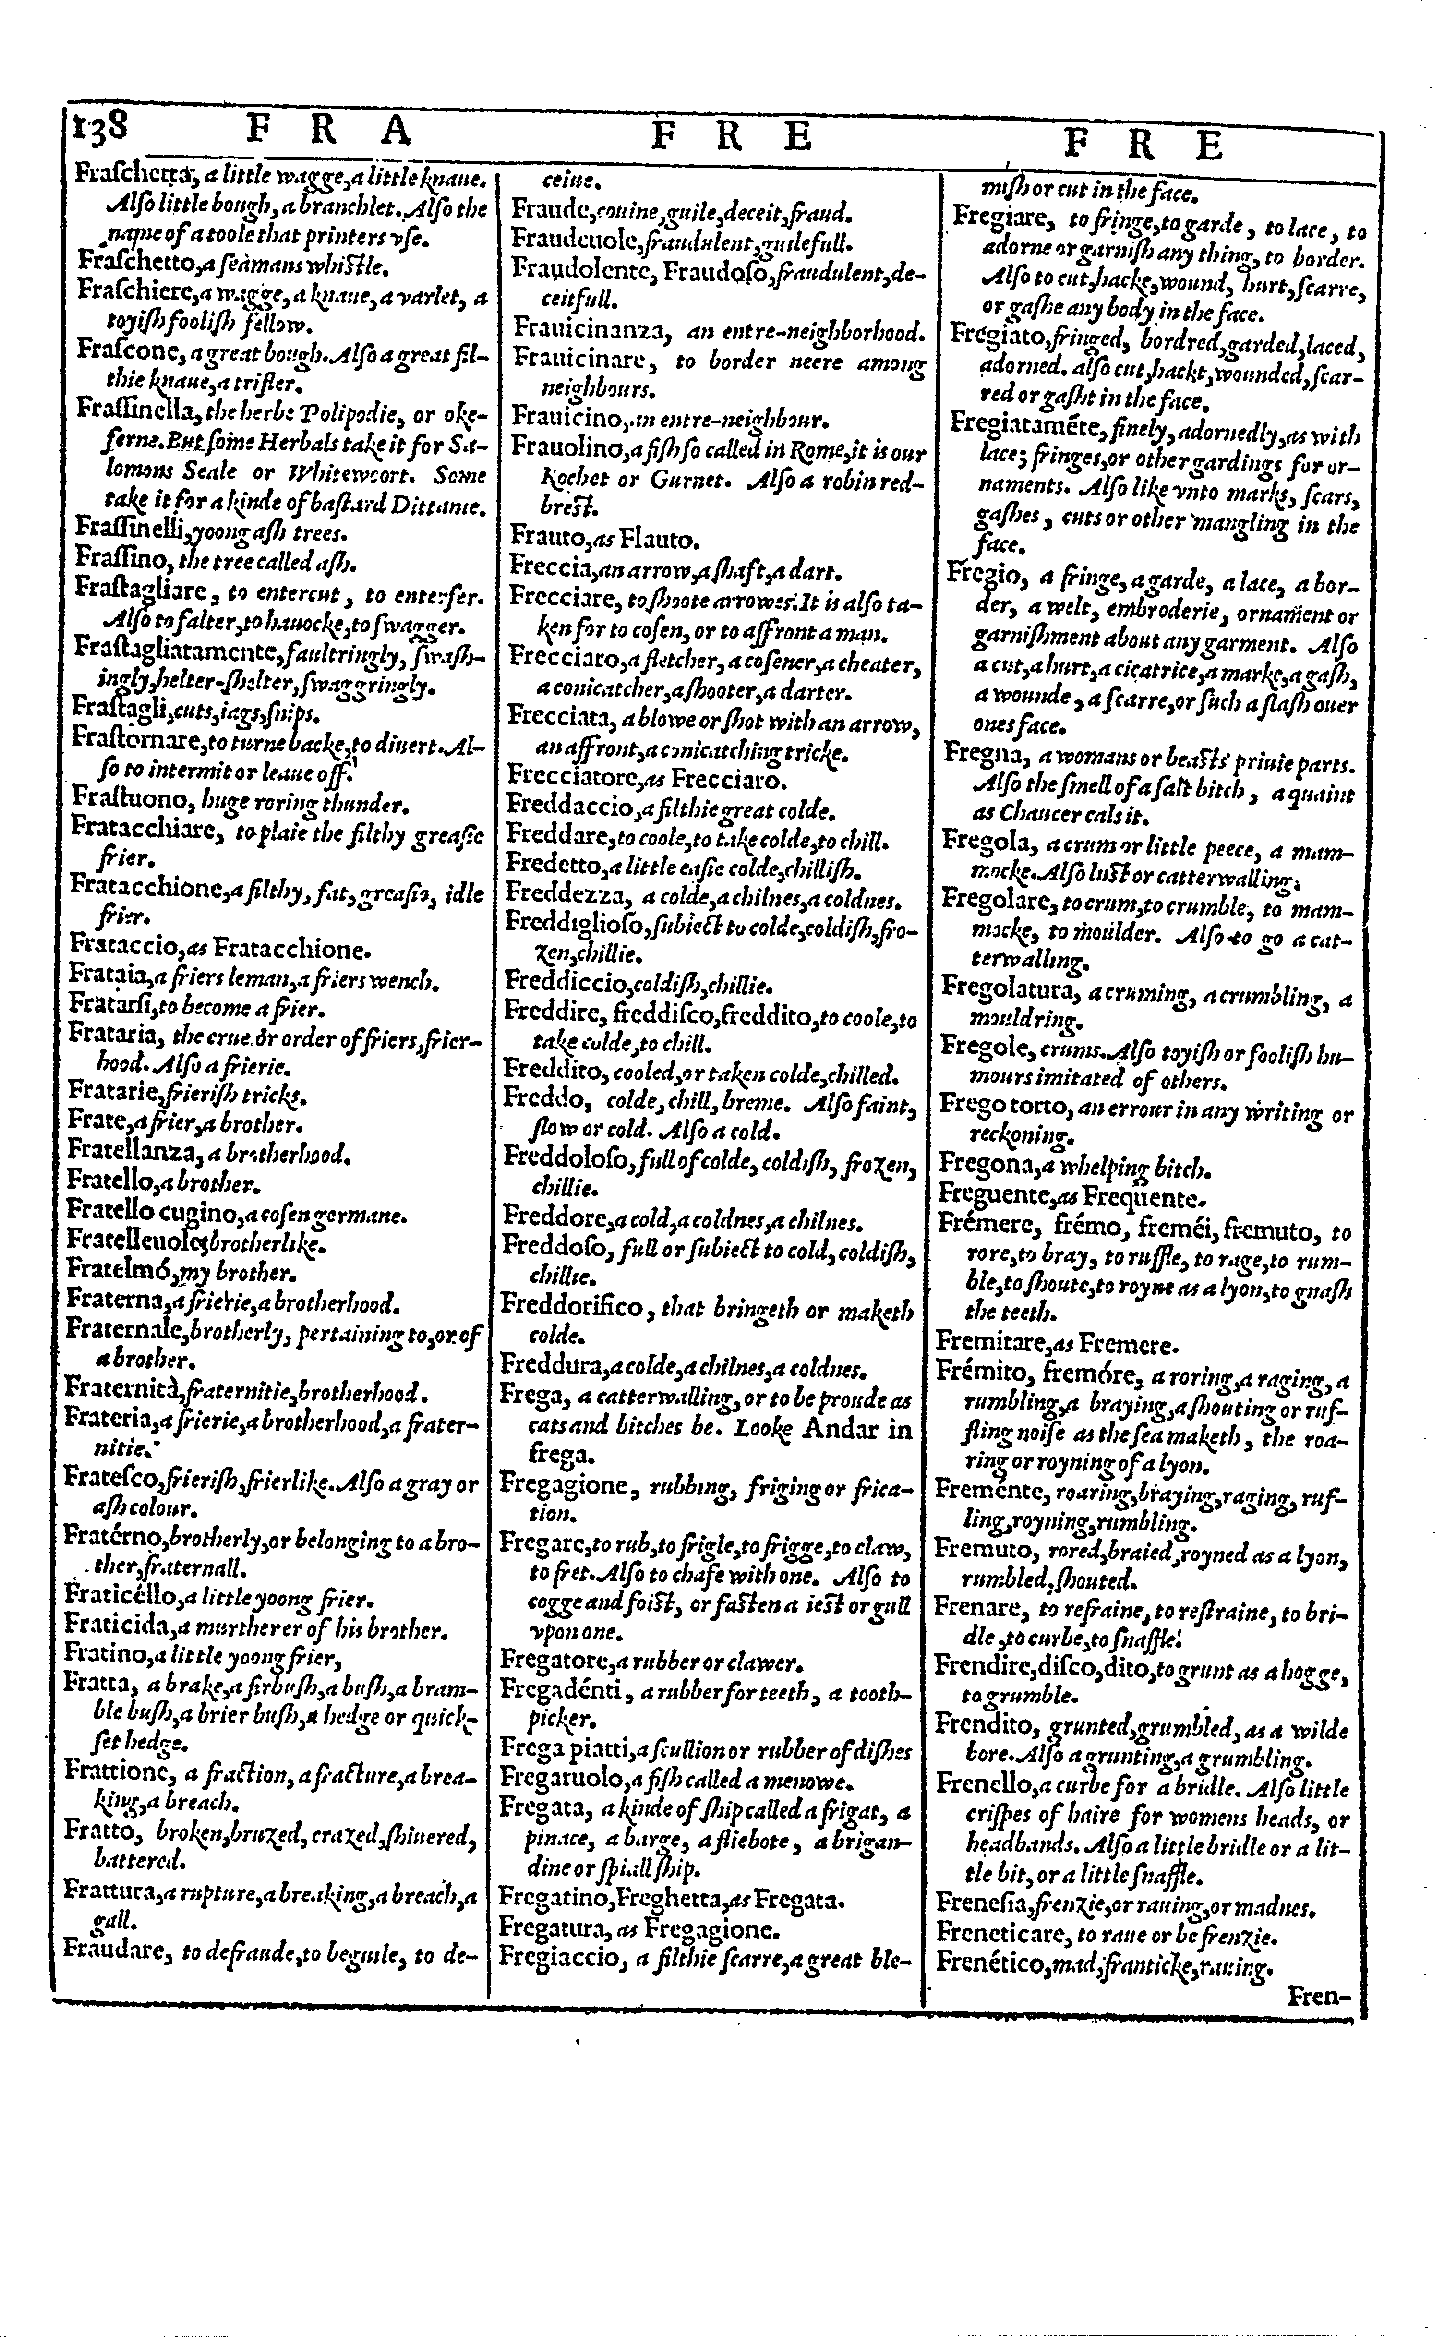 138 F R A F R E F R E
Fraſchetta, a little wagge, a little knaue.
Alſo little bough, a branchlet. Alſo the
name of a toole that printers vſe.
Fraſchetto, a ſeamans whiſtle.
Fraſchiere, a wagge, a knaue, a varlet, a
toyiſh fooliſh fellow.
Fraſcone, a great bough. Alſo a great fil-
thie knaue, a trifler.
Fraſſinella, the herbe Polipodie, or oke-
ferne. But ſome Herbals take it for Sa-
lomons Seale or Whitewoort. Some
take it for a kinde of baſtard Dittanie.
Fraſſinelli, yoong aſh trees.
Fraſſino, the tree called aſh.
Fraſtagliare, to entercut, to enterfer.
Alſo to falter, to hauocke, to ſwagger.
Fraſtagliatamente, faultringly, ſwaſh-
ingly, helter-ſkelter, ſwaggringly.
Fraſtagli, cuts, iags, ſnips.
Fraſtornare, to turne backe, to diuert. Al-
ſo to intermit or leaue off.
Fraſtuono, huge roring thunder.
Fratacchiare, to plaie the filthy greaſie
frier.
Fratacchione, a filthy, fat, greaſie, idle
frier.
Frataccio, as Fratacchione.
Frataia, a friers leman, a friers wench.
Fratarſi, to become a frier.
Frataria, the crue or order of friers, frier-
hood. Alſo a frierie.
Fratarie, frieriſh tricks.
Frate, a frier, a brother.
Fratellanza, a brotherhood.
Fratello, a brother.
Fratello cugino, a coſen germane.
Fratelleuole, brotherlike.
Fratelmó, my brother.
Fraterna, a frierie, a brotherhood.
Fraternale, brotherly, pertaining to, or of
a brother.
Fraternità, fraternitie, brotherhood.
Frateria, a frierie, a brotherhood, a frater-
nitie.
Frateſco, frieriſh, frierlike. Alſo a gray or
aſh colour.
Fratérno, brotherly, or belonging to a bro-
ther, fraternall.
Fraticéllo, a little yoong frier.
Fraticida, a murtherer of his brother.
Fratino, a little yoong frier,
Fratta, a brake, a firbuſh, a buſh, a bram-
ble buſh, a brier buſh, a hedge or quick-
ſet hedge.
Frattione, a fraction, a fracture, a brea-
king, a breach.
Fratto, broken, bruzed, crazed, ſhiuered,
battered.
Frattura, a rupture, a breaking, a breach, a
gall.
Fraudare, to defraude, to beguile, to de-
ceiue.
Fraude, couine, guile, deceit, fraud.
Fraudeuole, fraudulent, guilefull.
Fraudolente, Fraudoſo, fraudulent, de-
ceitfull.
Frauicinanza, an entre-neighborhood.
Frauicinare, to border neere among
neighbours.
Frauicino, an entre-neighbour.
Frauolino, a fiſh ſo called in Rome, it is our
Rochet or Gurnet. Alſo a robin red-
breſt.
Frauto, as Flauto.
Freccia, an arrow, a ſhaft, a dart.
Frecciare, to ſhoote arrowes. It is alſo ta-
ken for to coſen, or to affront a man.
Frecciaro, a fletcher, a coſener, a cheater,
a conicatcher, a ſhooter, a darter.
Frecciata, a blowe or ſhot with an arrow,
an affront, a conicatching tricke.
Frecciatore, as Frecciaro.
Freddaccio, a filthie great colde.
Freddare, to coole, to take colde, to chill.
Fredetto, a little eaſie colde, chilliſh.
Freddezza, a colde, a chilnes, a coldnes.
Freddiglioſo, ſubiect to colde, coldiſh, fro-
zen, chillie.
Freddiccio, coldiſh, chillie.
Freddire, freddiſco, freddito, to coole, to
take colde, to chill.
Freddito, cooled, or taken colde, chilled.
Freddo, colde, chill, breme. Alſo faint,
ſlow or cold. Alſo a cold.
Freddoloſo, full of colde, coldiſh, frozen,
chillie.
Freddore, a cold, a coldnes, a chilnes.
Freddoſo, full or ſubiect to cold, coldiſh,
chillie.
Freddorifico, that bringeth or maketh
colde.
Freddura, a colde, a chilnes, a coldnes.
Frega, a catterwalling, or to be proude as
cats and bitches be. Looke Andar in
frega.
Fregagione, rubbing, friging or frica-
tion.
Fregare, to rub, to frigle, to frigge, to claw,
to fret. Alſo to chafe with one. Alſo to
cogge and foiſt, or faſten a ieſt or gull
vpon one.
Fregatore, a rubber or clawer.
Fregadénti, a rubber for teeth, a tooth-
picker.
Frega piatti, a scullion or rubber of diſhes
Fregaruolo, a fiſh called a menowe.
Fregata, a kinde of ſhip called a frigat, a
pinace, a barge, a fliebote, a brigan-
dine or ſpiall ſhip.
Fregatino, Freghetta, as Fregata.
Fregatura, as Fregagione.
Fregiaccio, a filthie ſcarre, a great ble-
miſh or cut in the face.
Fregiare, to fringe, to garde, to lace, to
adorne or garniſh any thing, to border.
Alſo to cut, hacke, wound, hurt, ſcarre,
or gaſhe any body in the face.
Fregiato, fringed, bordred, garded, laced,
adorned. alſo cut, hackt, wounded, ſcar-
red or gaſht in the face.
Fregiataméte, finely, adornedly, as with
lace, fringes, or other gardings for or-
naments. Alſo like vnto marks, ſcars,
gaſhes, cuts or other mangling in the
face.
Fregio, a fringe, a garde, a lace, a bor-
der, a welt, embroderie, ornament or
garniſhment about any garment. Alſo
a cut, a hurt, a cicatrice, a marke, a gaſh,
a wounde, a ſcarre, or ſuch a ſlaſh ouer
ones face.
Fregna, a womans or beaſts priuie parts.
Alſo the ſmell of a ſalt bitch, a quaint
as Chaucer cals it.
Fregola, a crum or little peece, a mam-
mocke. Alſo luſt or catterwalling.
Fregolare, to crum, to crumble, to mam-
mocke, to moulder. Alſo to go a cat-
terwalling.
Fregolatura, a cruming, a crumbling, a
mouldring.
Fregole, crums. Alſo toyiſh or fooliſh hu-
mours imitated of others.
Frego torto, an errour in any writing or
reckoning.
Fregona, a whelping bitch.
Freguente, as Frequente.
Frémere, frémo, freméi, fremuto, to
rore, to bray, to ruffle, to rage, to rum-
ble, to ſhoute, to royne as a lyon, to gnaſh
the teeth.
Fremitare, as Fremere.
Frémito, fremóre, a roring, a raging, a
rumbling, a braying, a ſhouting or ruf-
fling noiſe as the ſea maketh, the roa-
ring or royning of a lyon.
Fremènte, roaring, braying, raging, ruf-
ling, royning, rumbling.
Fremuto, rored, braied, royned as a lyon,
rumbled, ſhouted.
Frenare, to refraine, to reſtraine, to bri-
dle, to curbe, to ſnaffle.
Frendire, diſco, dito, to grunt as a hogge,
to grumble.
Frendito, grunted, grumbled, as a wilde
bore. Alſo a grunting, a grumbling.
Frenello, a curbe for a bridle. Alſo little
criſpes of haire for womens heads, or
headbands. Alſo a little bridle or a lit-
tle bit, or a little ſnaffle.
Freneſia, frenzie, or rauing, or madnes.
Freneticare, to raue or be frenzie.
Frenético, mad, franticke, rauing.
Fren-